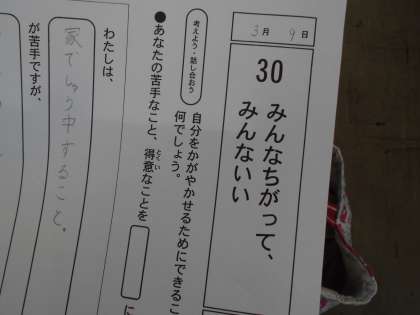 3月9日
30 みんなちがって、
みんないい
考えよう・話し合おう
自分をかがやかせるためにできるこ
何でしょう。
●あなたの苦手なこと、得意なことを
とくい
に
わたしは、
家でしゅう中すること。
が苦手ですが、